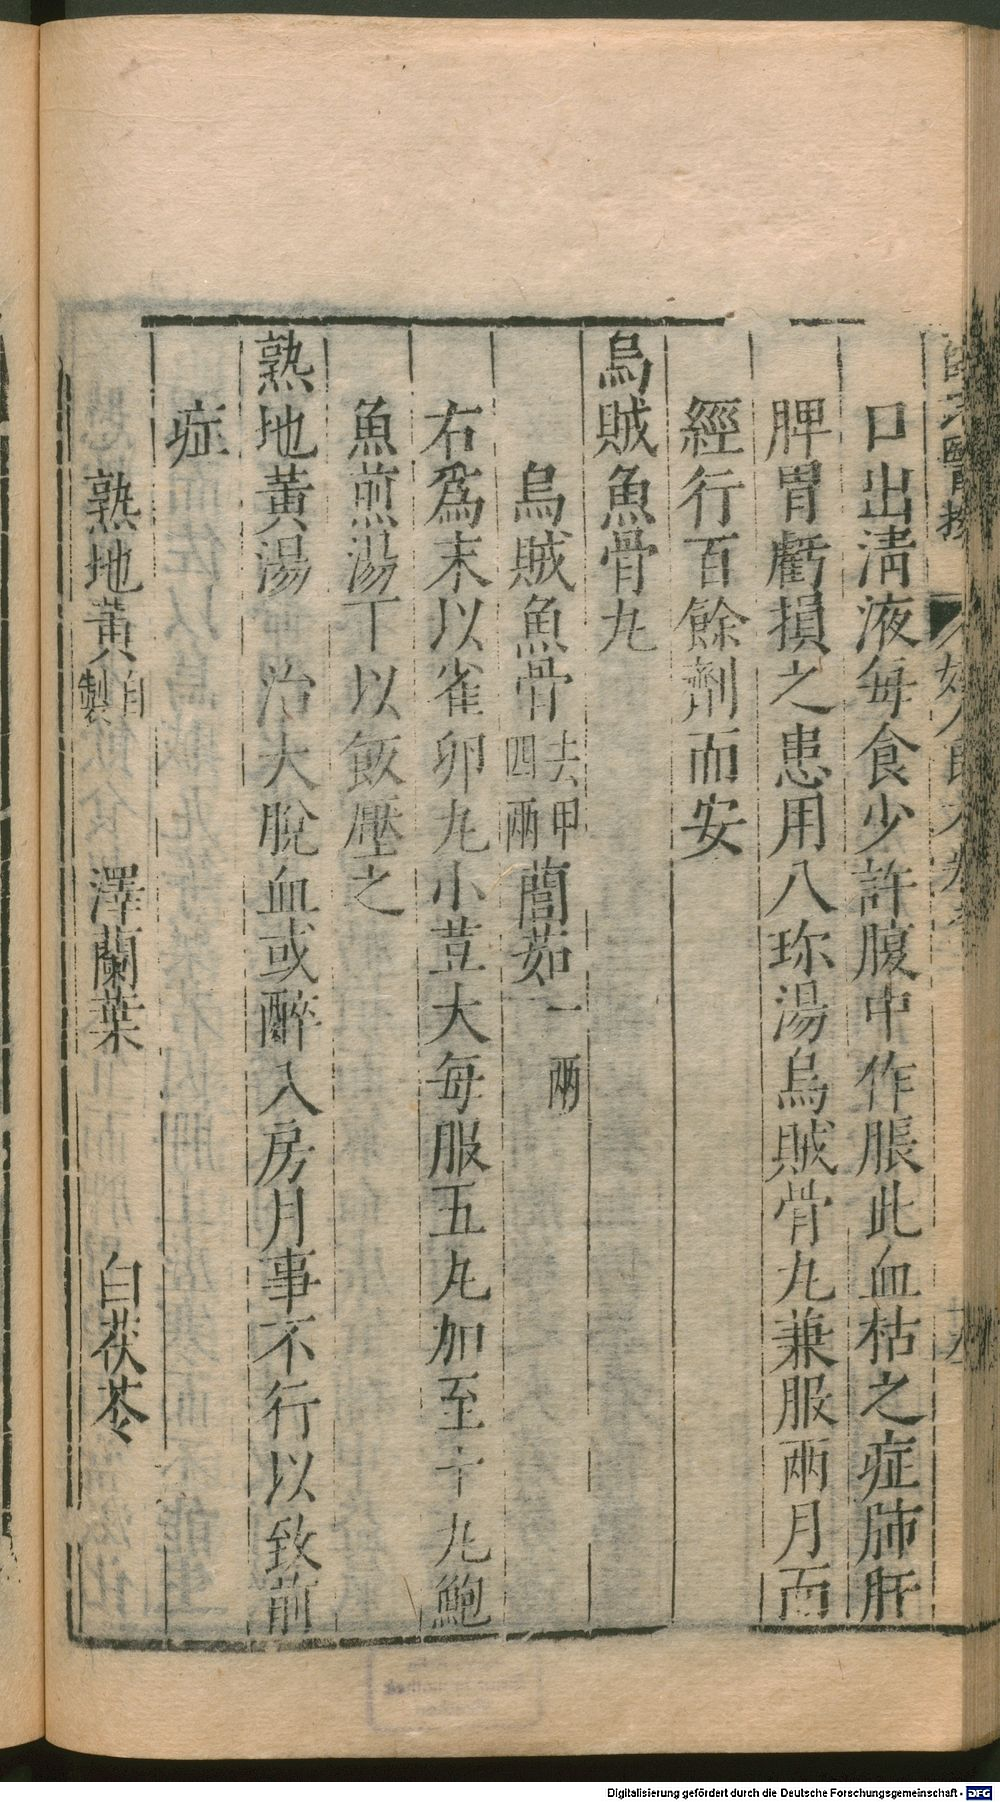 口出淸液每食少許腹中作脹此血枯之症肺肝
脾胃虧損之患用八珎湯烏賊骨丸兼服兩月而
經行百餘劑而安
烏賊魚骨丸
烏賊魚骨去甲四兩 蘭茹一兩
右爲末以雀卵丸小荳大每服五丸加至十丸鮑
魚煎湯下以飯壓之
熟地黃湯 治大脫血或醉入房月事不行以致前
症
熟地黃自製 澤蘭葉 白茯苓
Digitalisierung gefördert durch die Deutsche Forschungsgemeinschaft - DFG